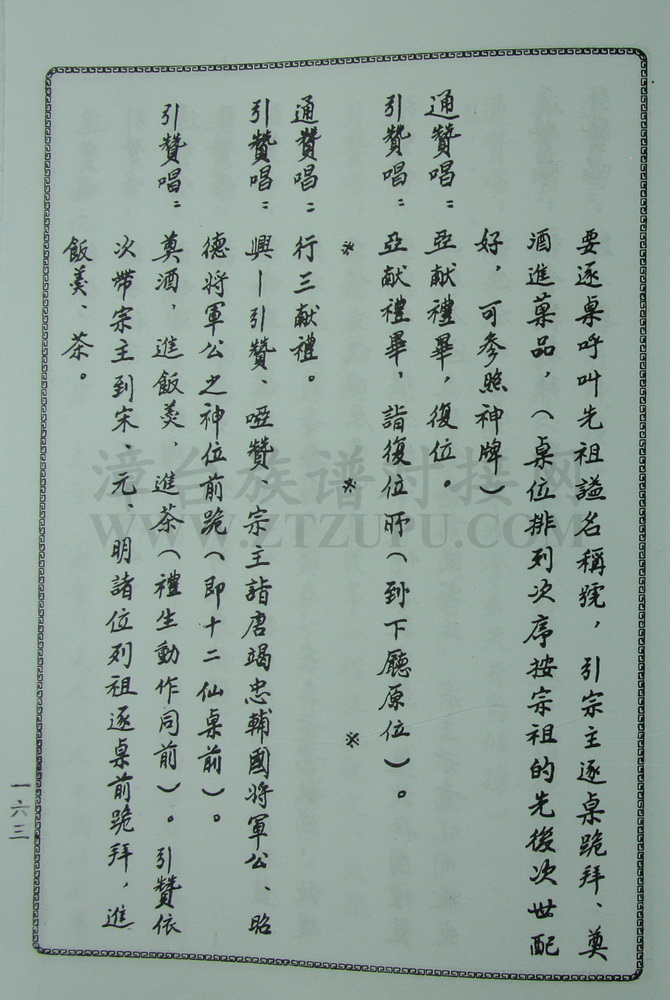 要逐桌呼叫先祖謚名稱號，引宗主逐桌跪拜、奠
酒進菓品，（桌位排列次序按宗祖的先後次世配
好，可參照神牌）
通贊唱：亞献禮畢，復位。
引贊唱：亞献禮畢，詣復位所（到下廳原位）。
※ ※ ※
通贊唱：行三献禮。
引贊唱：興—引贊、啞贊、宗主詣唐竭忠輔國將軍公、昭
德將軍公之神位前跪（即十二仙桌前）。
引贊唱：奠酒，進飯羹，進茶（禮生動作同前）。引贊依
次帶宗主到宋、元、明諸位列祖逐桌前跪拜，進
飯羹、茶。
一六三
漳台族谱对接网
WWW.ZTZUPU.COM